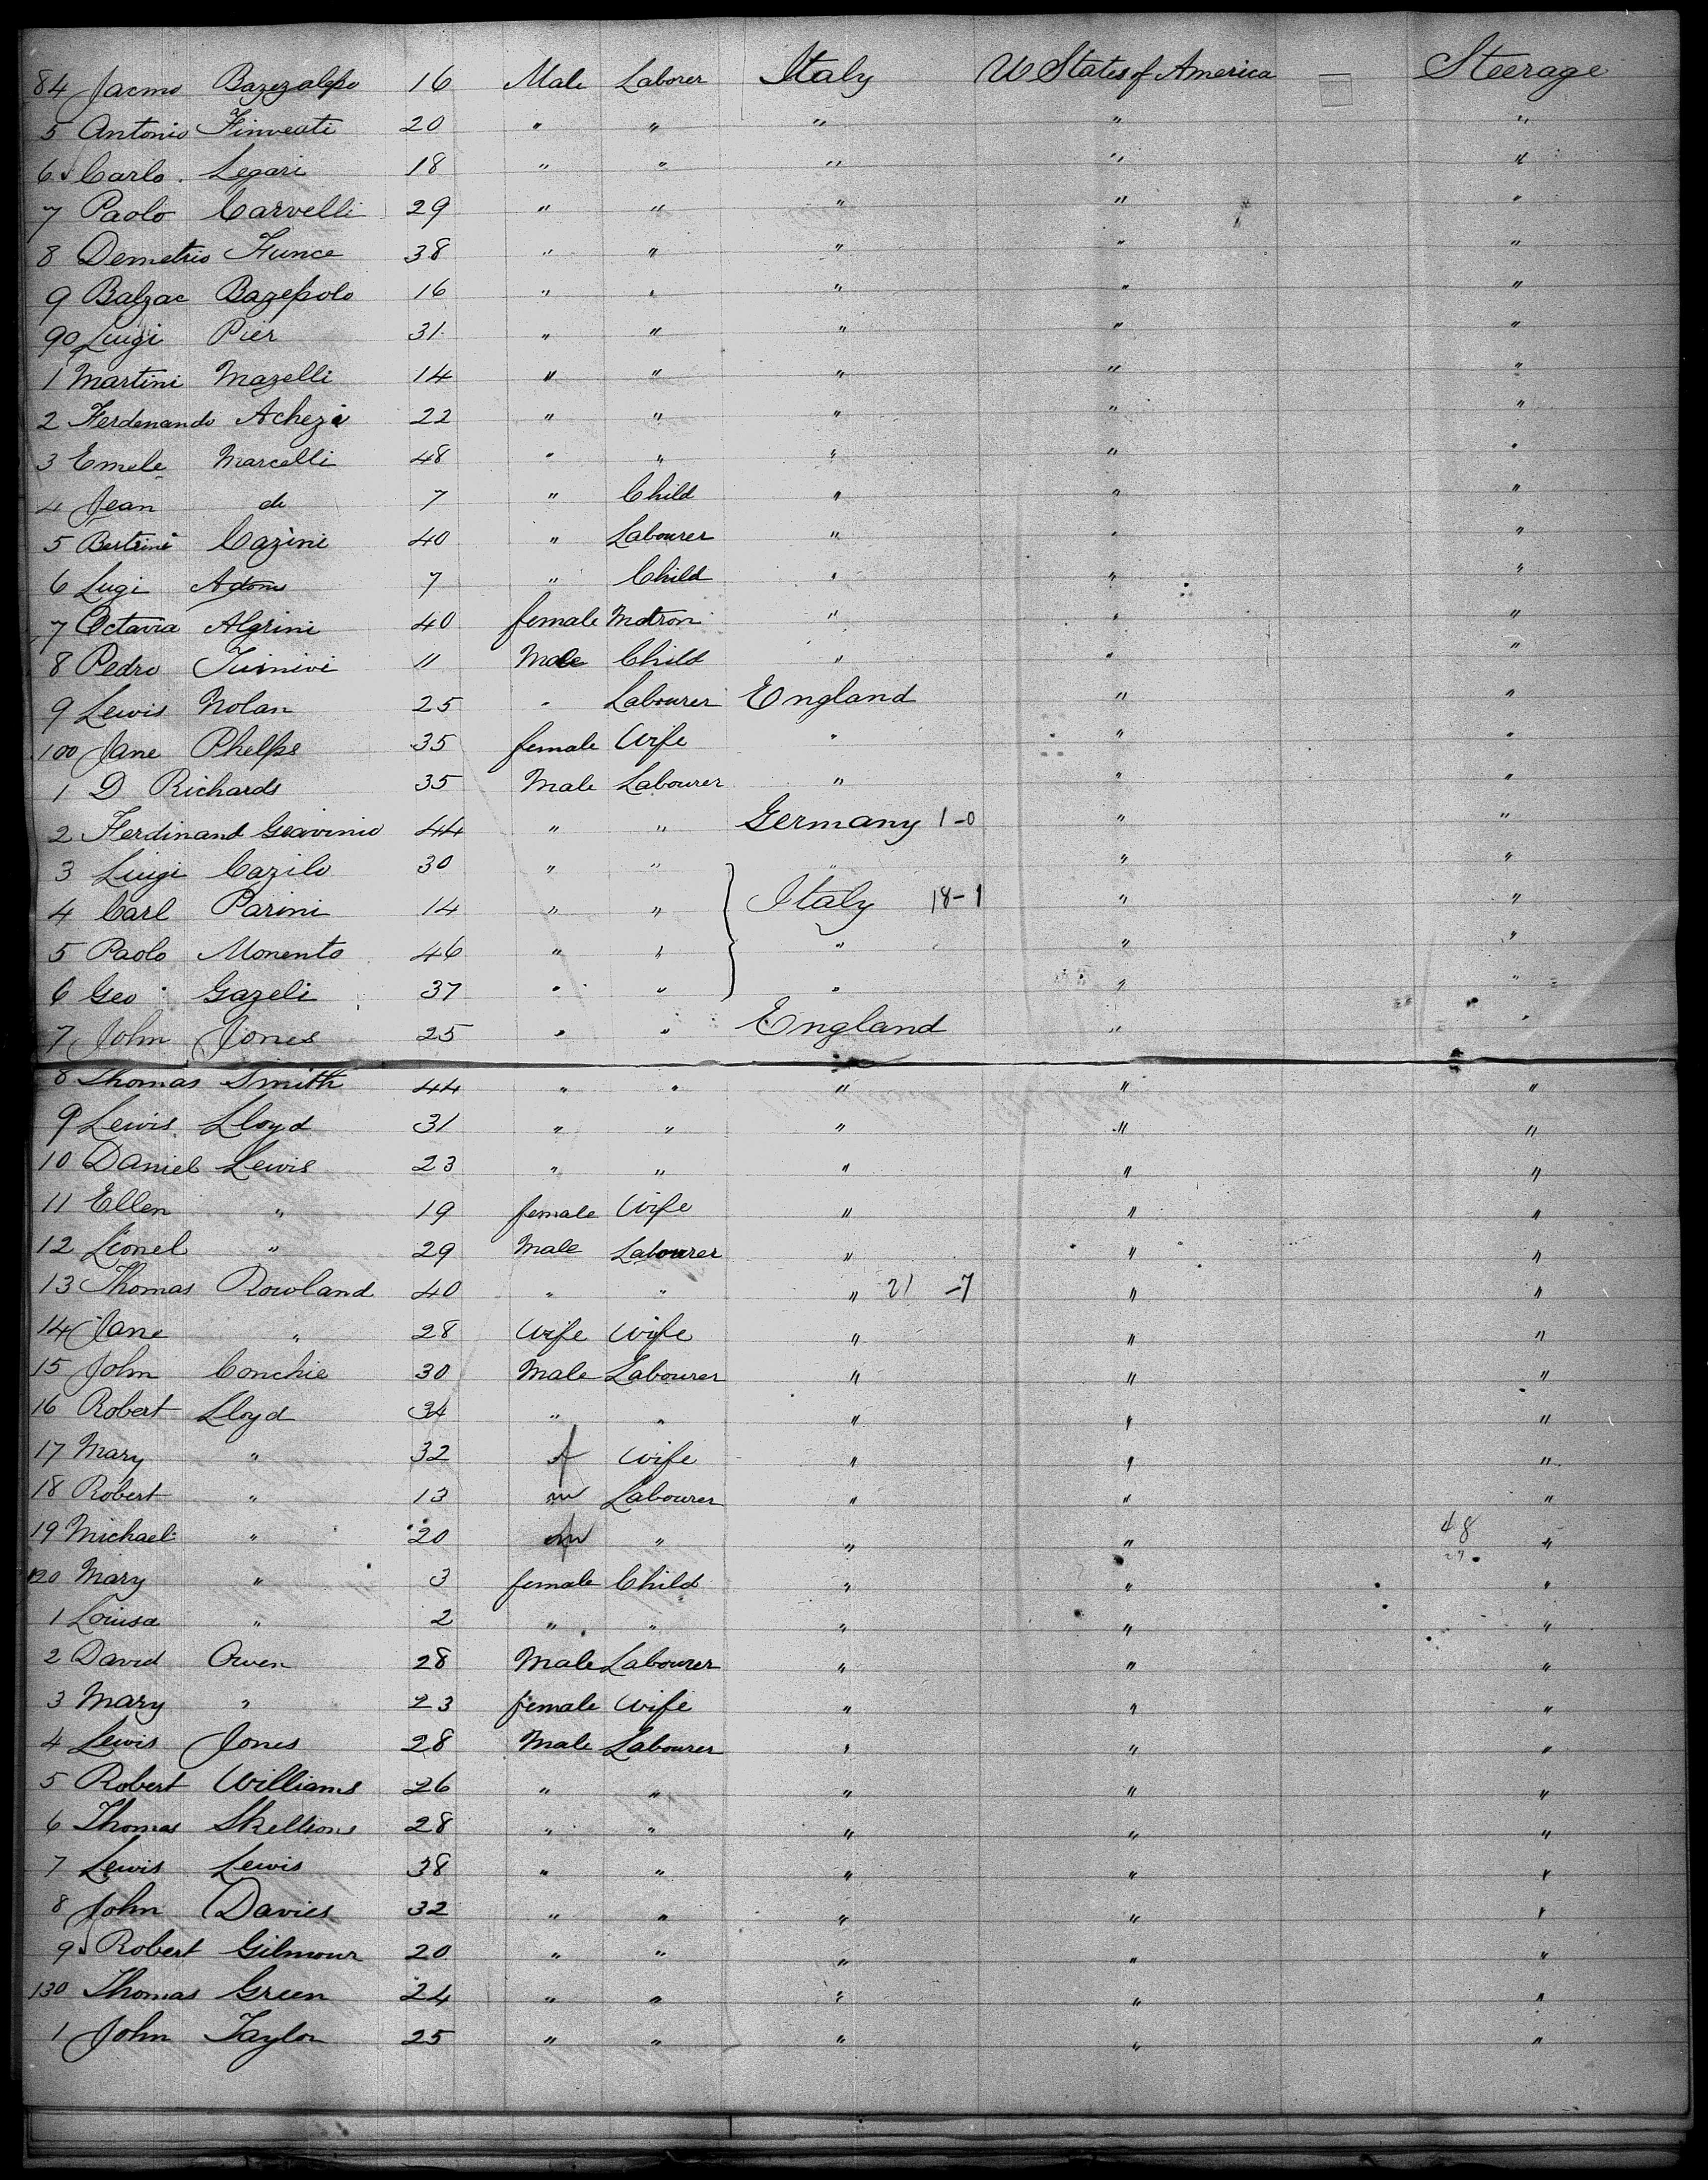 84 Jacmo Bazezalpo 16 Male Laborer Italy U States of America — Steerage
5 Antonio Finveati 20 " " " " "
6 Carlo Legari 18 " " " " "
7 Paolo Carvelli 29 " " " " "
8 Demetrio Funce 38 " " " " "
9 Balzac Bagepolo 16 " " " " "
90 Luigi Pier 31 " " " " "
1 Martini Mazelli 14 " " " " "
2 Ferdenando Achezi 22 " " " " "
3 Emele Marcelli 48 " " " " "
4 Jean do 7 " Child " " "
5 Bertrini Cazini 40 " Labourer " " "
6 Lugi Adoms 7 " Child " " "
7 Octavia Algrini 40 female Matron " " "
8 Pedro 11 Male Child " " "
9 Lewis Nolan 25 " Labourer England " "
100 Jane Phelps 35 female Wife " " "
1 D Richards 35 Male Labourer " " "
2 Ferdinand Geavinio 44 " " Germany 1-0 " "
3 Luigi Cazilo 30 " " " " "
4 Carl Parini 14 " " Italy 18-1 " "
5 Paolo Monento 46 " " " " "
6 Geo Gazeli 37 " " " " "
7 John Jones 25 " " England " "
8 Thomas Smith 44 " " " " "
9 Lewis Lloyd 31 " " " " "
10 Daniel Lewis 23 " " " " "
11 Ellen " 19 female Wife " " "
12 Lionel " 29 Male Labourer " " "
13 Thomas Rowland 40 " " " 21 -7 " "
14 Jane " 28 Wife Wife " " "
15 John Conchie 30 Male Labourer " " "
16 Robert Lloyd 34 " " " " "
17 Mary " 32 f Wife " " "
18 Robert " 13 m Labourer " " "
19 Michael " 20 m " " " 48 "
27
120 Mary " 3 female Child " " "
1 Louisa " 2 " " " " "
2 David Owen 28 Male Labourer " " "
3 Mary " 23 female Wife " " "
4 Lewis Jones 28 Male Labourer " " "
5 Robert Williams 26 " " " " "
6 Thomas Skellions 28 " " " " "
7 Lewis Lewis 38 " " " " "
8 John Davies 32 " " " " "
9 Robert Gilmour 20 " " " " "
130 Thomas Green 24 " " " " "
1 John Taylor 25 " " " " "